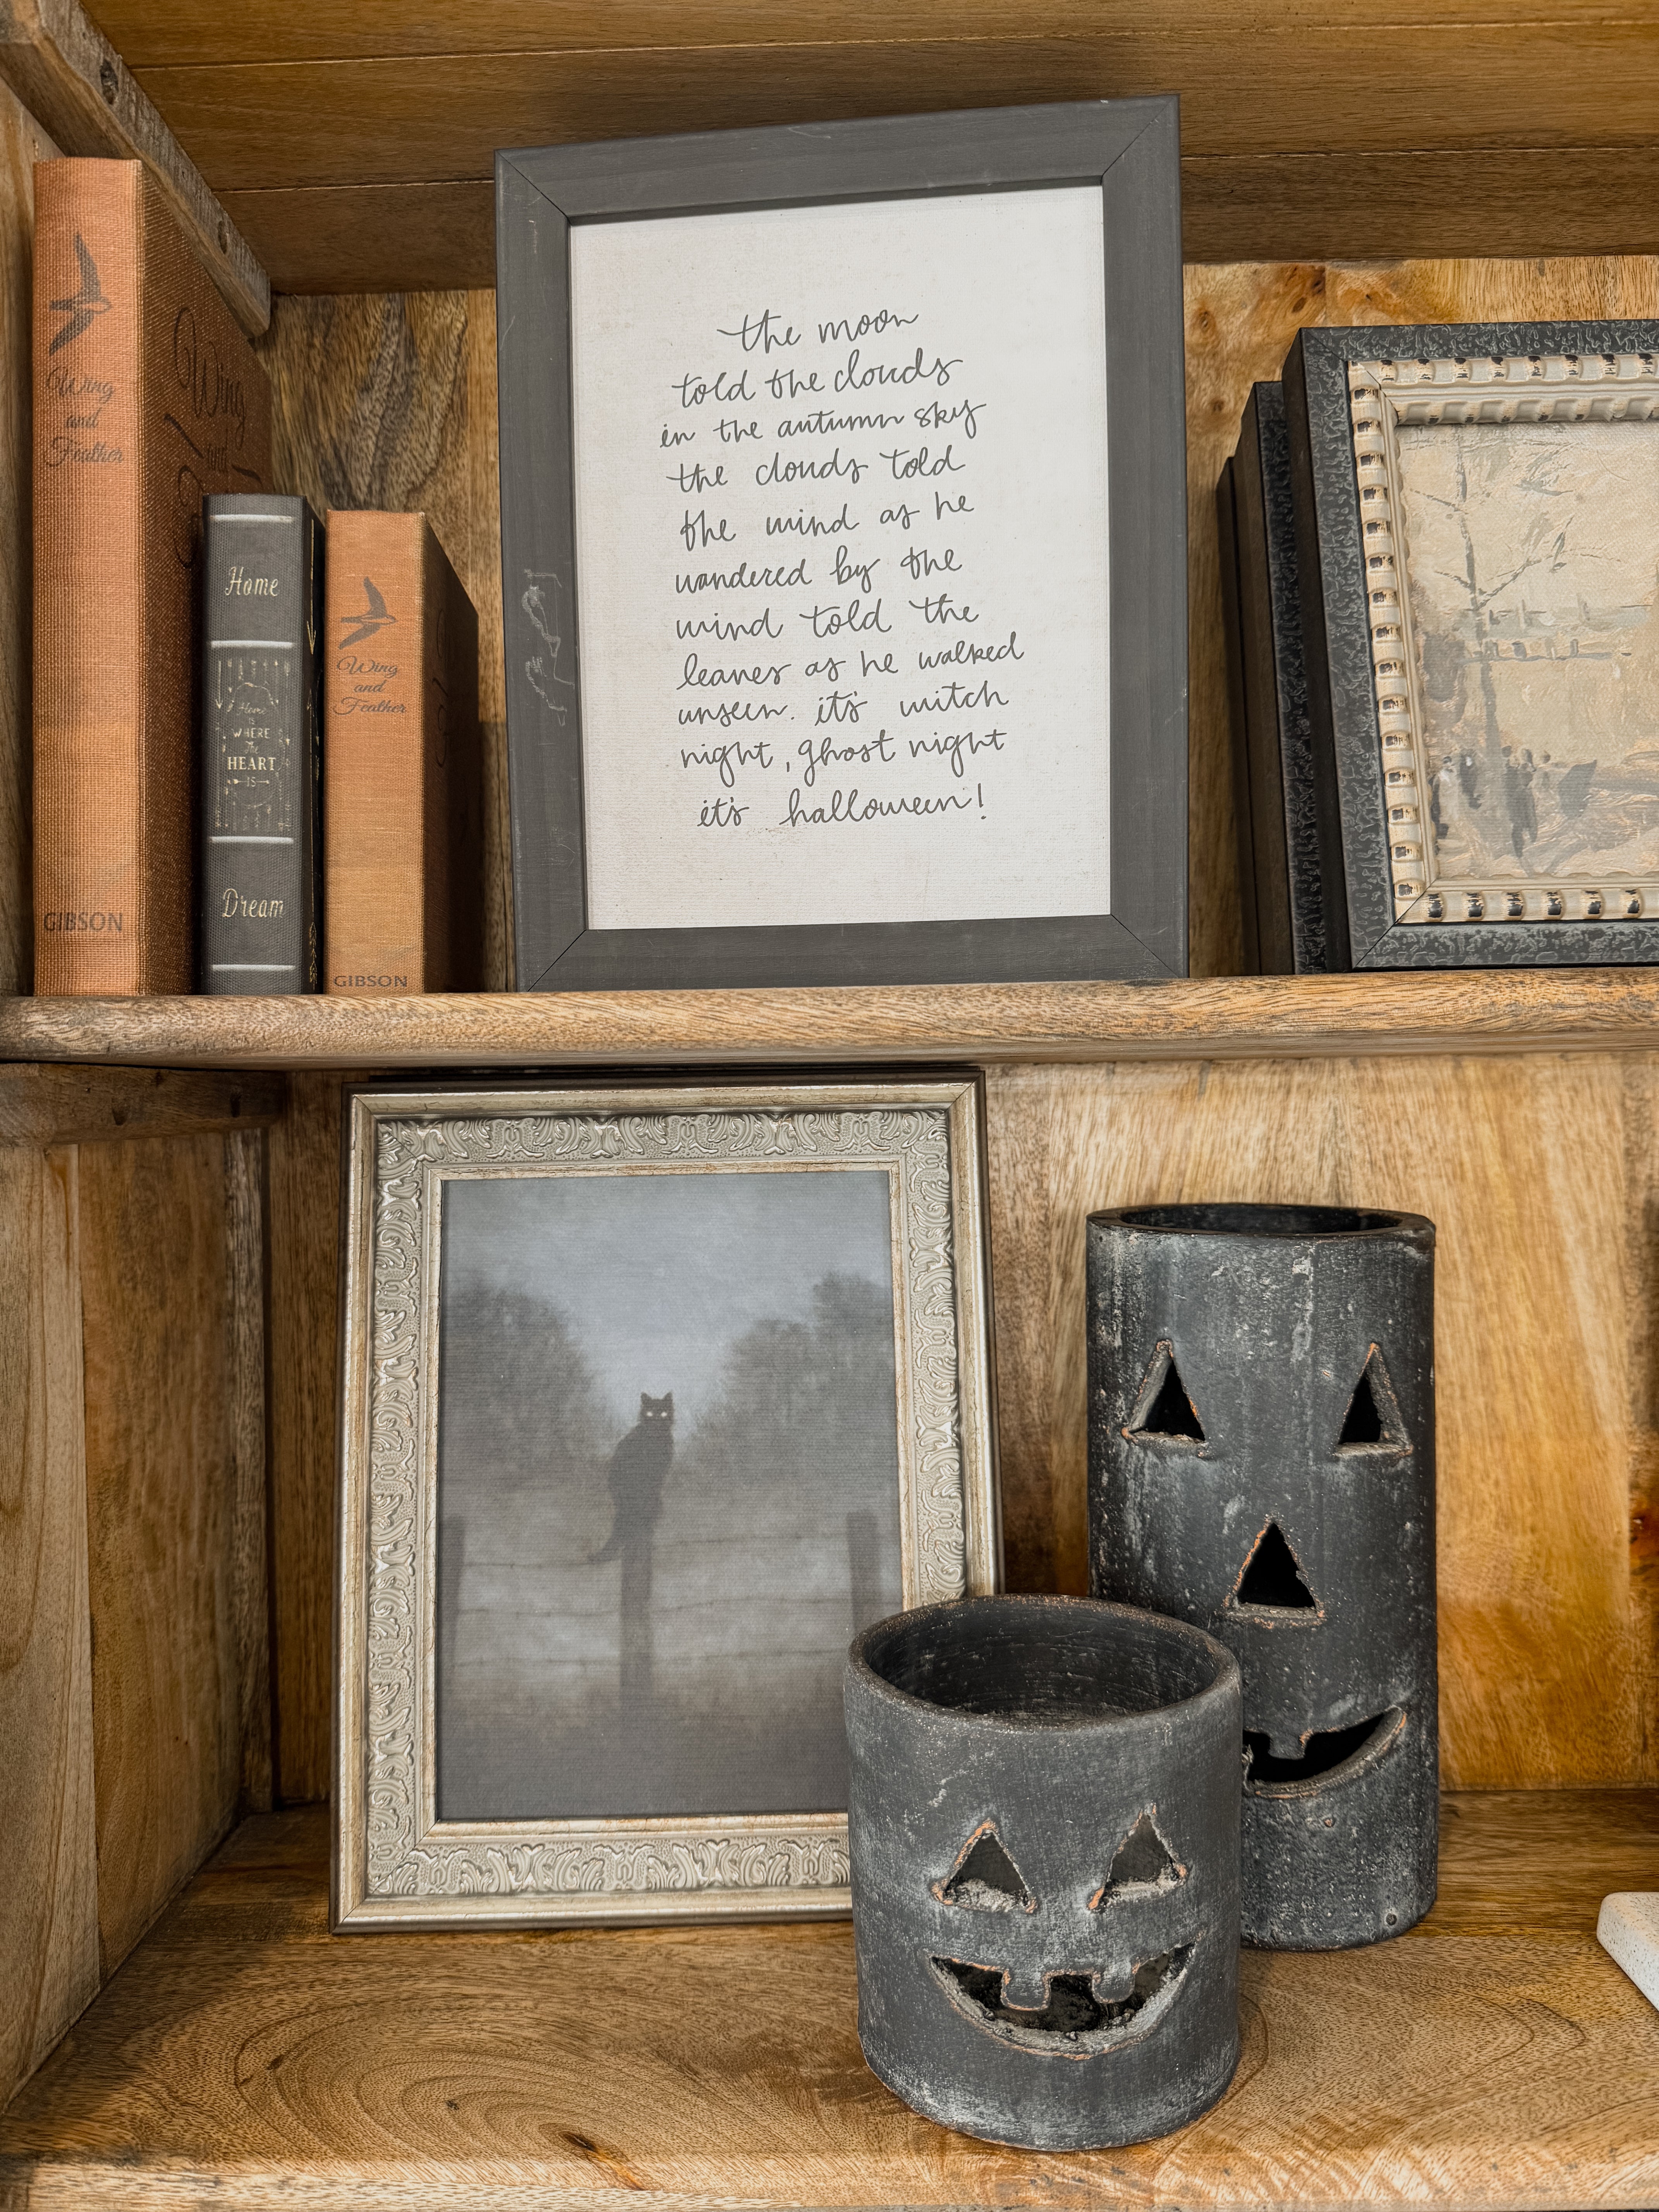 Wing
and
Feather
GIBSON
Wing
and
Home
Home
is
WHERE
The
HEART
IS
Dream
Wing
and
Feather
GIBSON
the moon
told the clouds
in the autumn sky
the clouds told
the wind as he
wandered by the
wind told the
leaves as he walked
unseen. it's witch
night, ghost night
it's halloween!